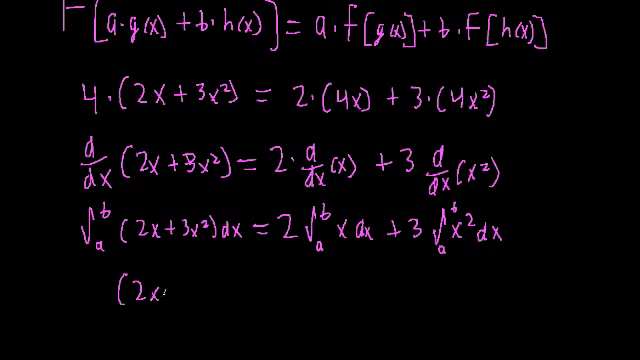 F[a·g(x) + b·h(x)] = a·f[g(x)] + b·F[h(x)]
4·(2x + 3x²) = 2·(4x) + 3·(4x²)
d/dx (2x + 3x²) = 2·d/dx (x) + 3 d/dx (x²)
∫_a^b (2x + 3x²)dx = 2 ∫_a^b x dx + 3 ∫_a^b x² dx
(2x